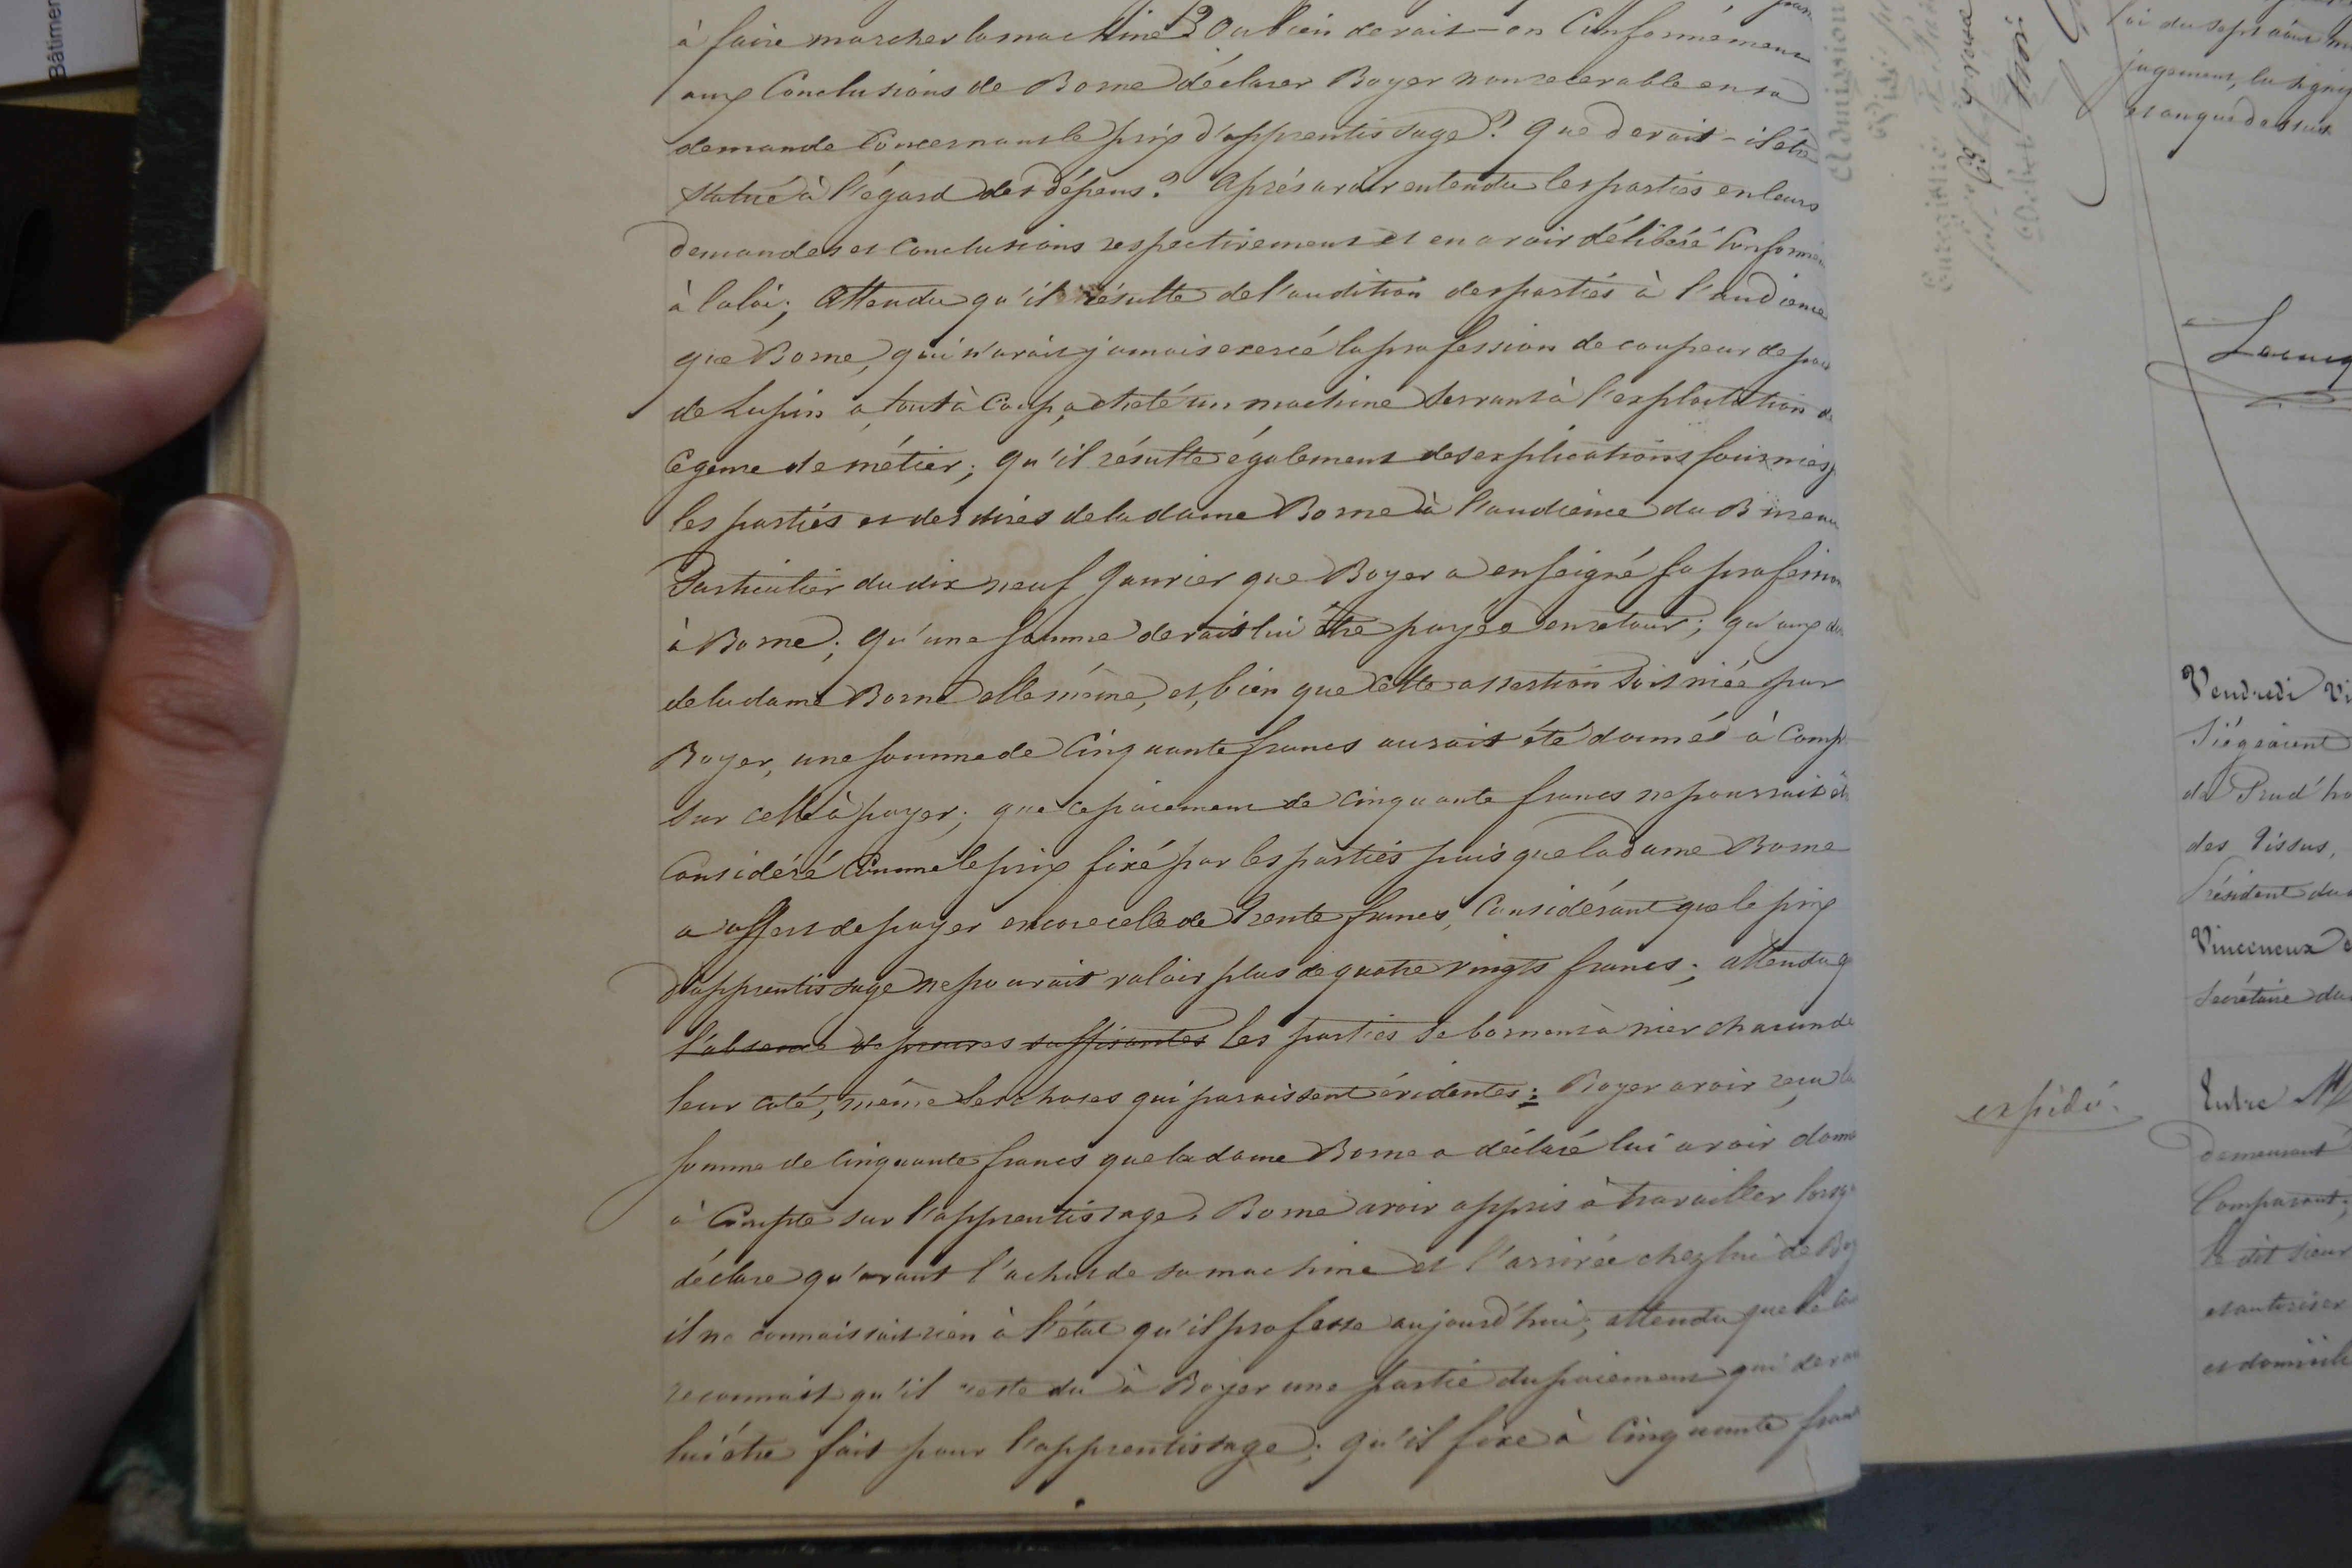 à faire marcher la machine? Ou bien devait-on Conformément
aux Conclusions de Borne déclarer Boyer non recevable en sa
demande Concernant le prix d'apprentissage? Que devait-il être
statué à l'égard des dépens? Après avoir entendu les parties en leurs
demandes et Conclusions respectivement et en avoir délibéré Conformém
à la loi; Attendu qu'il résulte de l'audition des parties à l'audience
que Borne, qui n'avait jamais exercé la profession de coupeur de poils
de Lapin a, tout à Coup, acheté un machine servant à l'exploitation de
ce genre de métier; qu'il résulte également des explications fournies p
les parties et des dires de la dame Borne à l'audience du Bureau
Particulier du dix neuf Janvier que Boyer a enseigné sa profession
à Borne; qu'une somme devait lui être payée en retour; qu'aux dires
de la dame Borne elle même, et, bien que cette assertion soit niée par
Boyer, une somme de Cinquante francs aurait été donnée à Compte
sur celle à payer; que ce paiement de cinquante francs ne pourrait être
Considéré Comme le prix fixé par les parties puisque la dame Borne
a offert de payer encore celle de trente francs, Considérant que le prix
d'apprentissage ne pouvait valoir plus de quatre vingts francs; attendu q
l'absence de preuves suffisantes les parties se bornent à nier chacun de
leur côté, même les choses qui paraissent évidentes; Boyer avoir reçu la
somme de Cinquante francs que la dame Borne a déclaré lui avoir donné
à Compte sur l'apprentissage, Borne avoir appris à travailler lorsqu'
déclare qu'avant l'achat de sa machine et l'arrivée chez lui de Boy
il ne connaissait rien à l'état qu'il professe aujourd'hui; attendu que le Con
reconnait qu'il reste du à Boyer une partie du paiement qui devait
lui être fait pour l'apprentissage; qu'il fixe à Cinquante francs
Bâtimen
loi du sept août m
jugement, la signif
et an que dessus
Vendredi Vi
Siégeaient
de Prud'ho
des Tissus,
Président du
Vinceneux
Secrétaire du
expédié.
Entre M
Demeurant
Comparant;
le dit sieur
et autoriser
et domicile